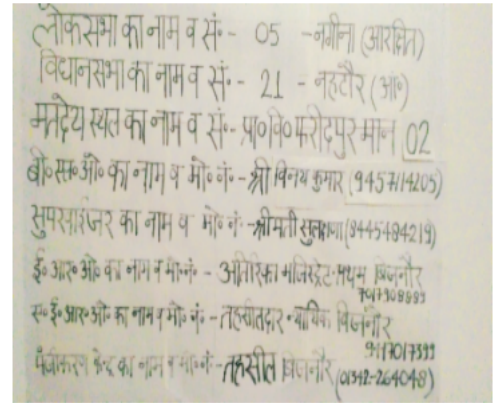 लोकसभा का नाम व सं॰- 05 -नगीना (आरक्षित)
विधानसभा का नाम व सं॰ - 21 - नहटौर (आ॰)
मतदेय स्थल का नाम व सं॰- प्रा॰वि॰ फरीदपुर मान 02
बी॰एल॰ओ॰ का नाम व मो॰ नं॰- श्री विनय कुमार (9457114205)
सुपरवाईजर का नाम व मो॰ नं॰ -श्रीमती (8445484219)
ई॰ आर॰ ओ॰ का नाम व मो॰नं॰ - अतिरिक्त मजिस्ट्रेट-प्रथम बिजनौर
स॰ई॰आर॰ओ॰ का नाम व मो॰ नं॰ - तहसीलदार न्यायिक बिजनौर
पंजीकरण केन्द्र का नाम व मो॰नं॰ -तहसील बिजनौर (01342-264048)